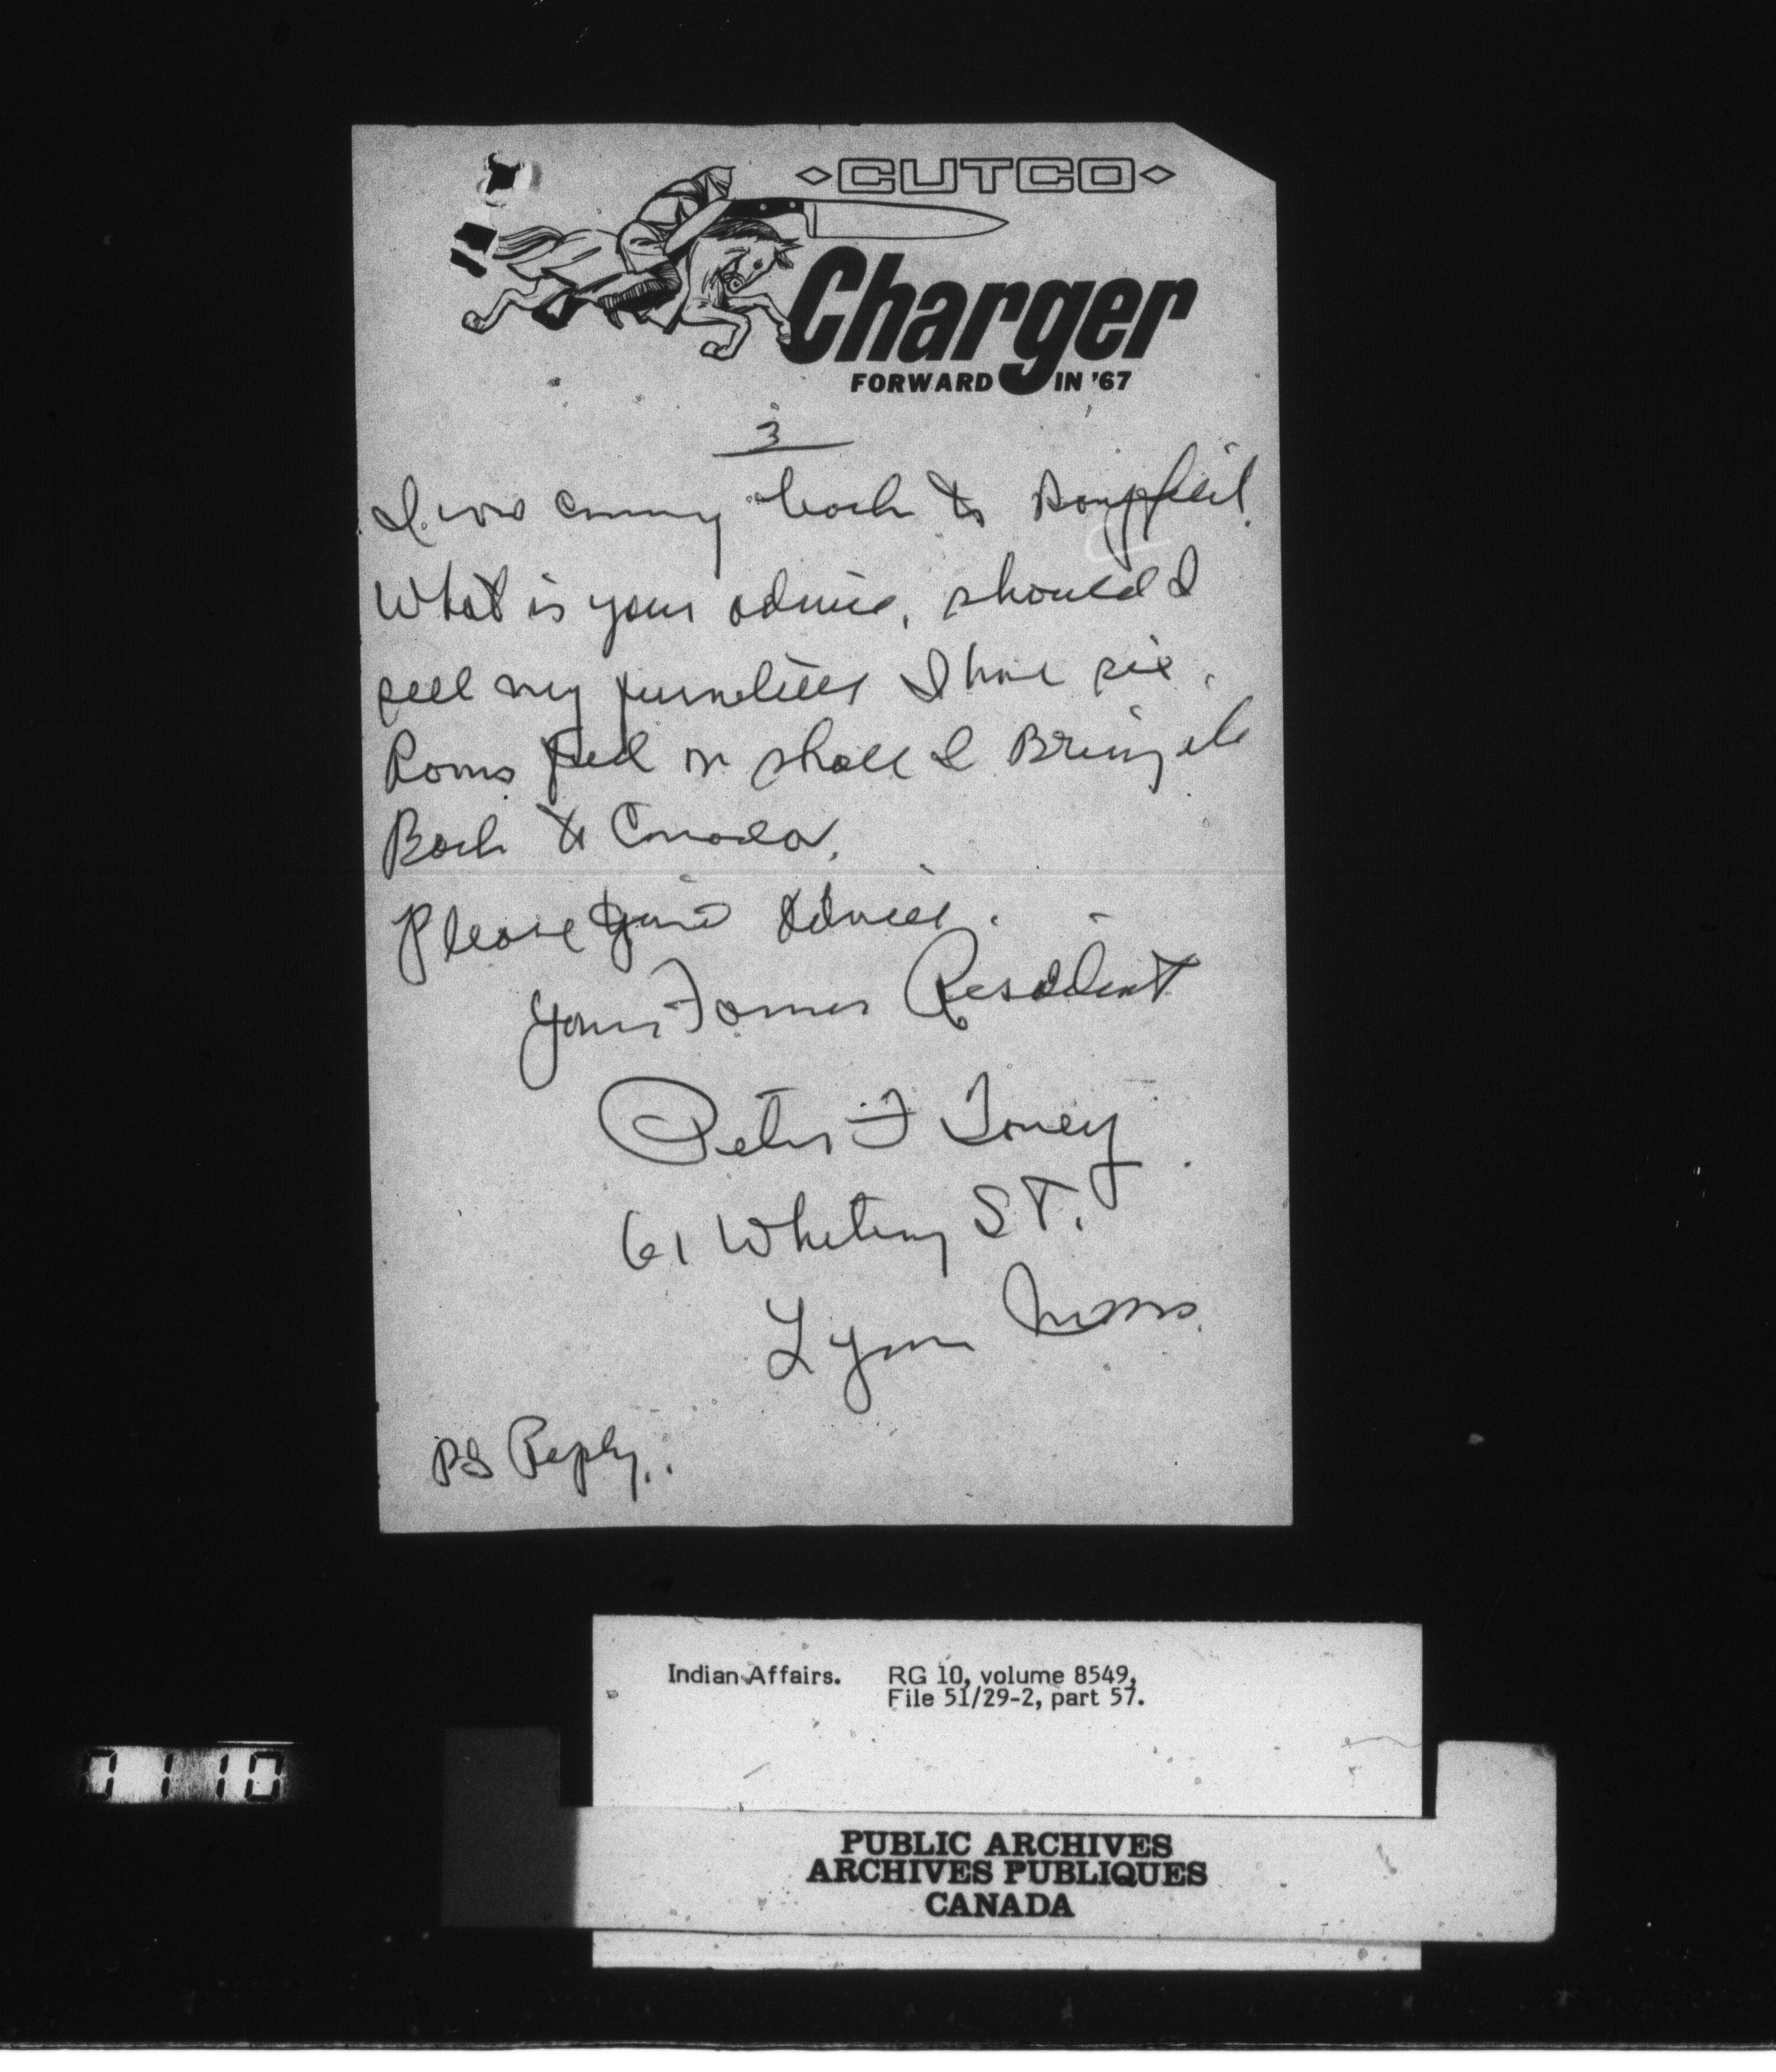 CUTCO
Charger
FORWARD IN '67
3
I was coming back to
What is your advice, should I
sell my furnitures I have six
Roms full or shall I Bring it
Back to Canada.
Please give Advice.
Your Former Resident
Peter F Toney
61 Whiting ST.
Lynn Mass.
PS Reply..
Indian Affairs. RG 10, volume 8549,
File 51/29-2, part 57.
0110
PUBLIC ARCHIVES
ARCHIVES PUBLIQUES
CANADA